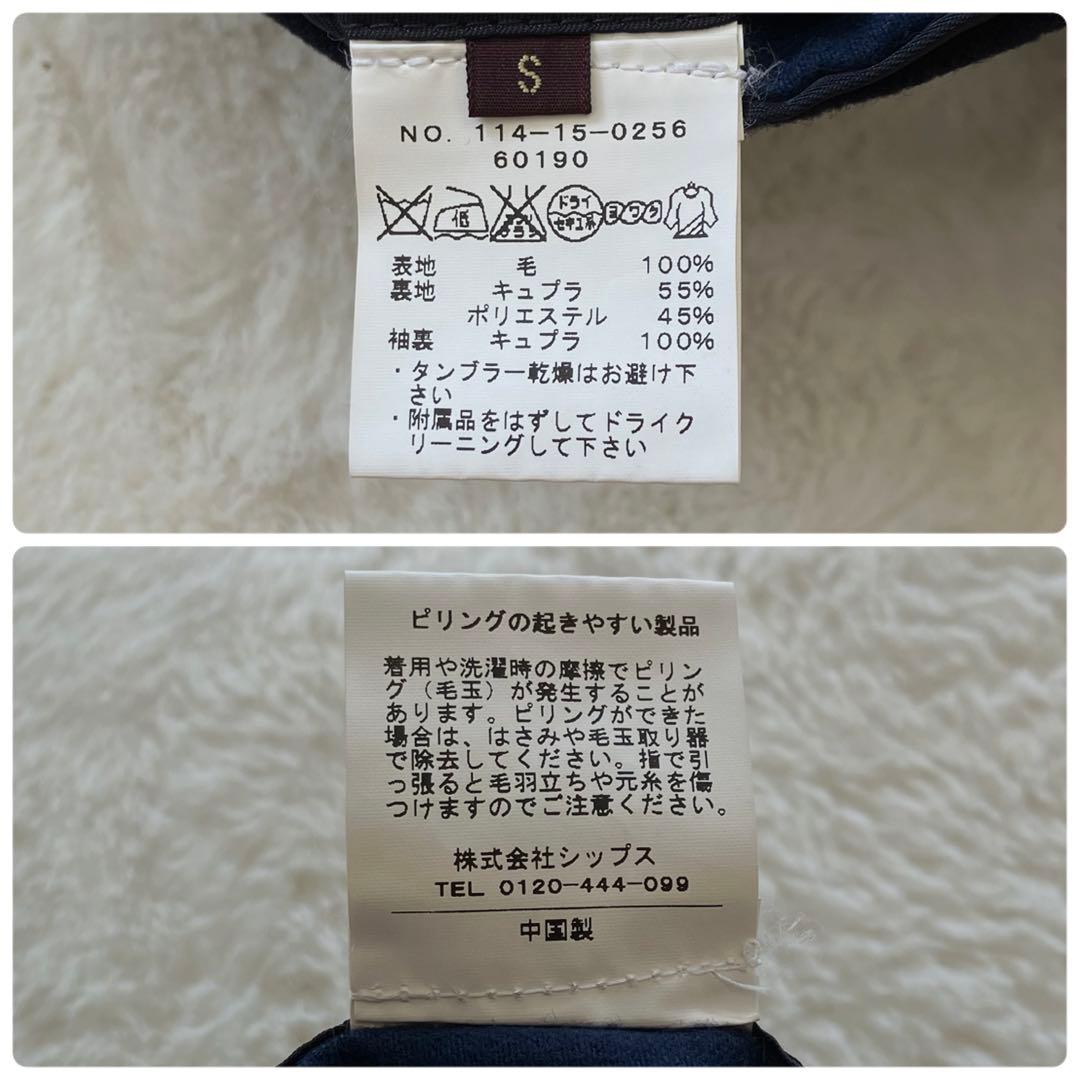 S
NO. 114-15-0256
60190
低 ドライ セキユ系 ヨワク
表地 毛 100%
裏地 キュプラ 55%
ポリエステル 45%
袖裏 キュプラ 100%
・タンブラー乾燥はお避け下
さい
・附属品をはずしてドライク
リーニングして下さい
ピリングの起きやすい製品
着用や洗濯時の摩擦でピリン
グ（毛玉）が発生することが
あります。ピリングができた
場合は、はさみや毛玉取り器
で除去してください。指で引
っ張ると毛羽立ちや元糸を傷
つけますのでご注意ください。
株式会社シップス
TEL 0120-444-099
中国製